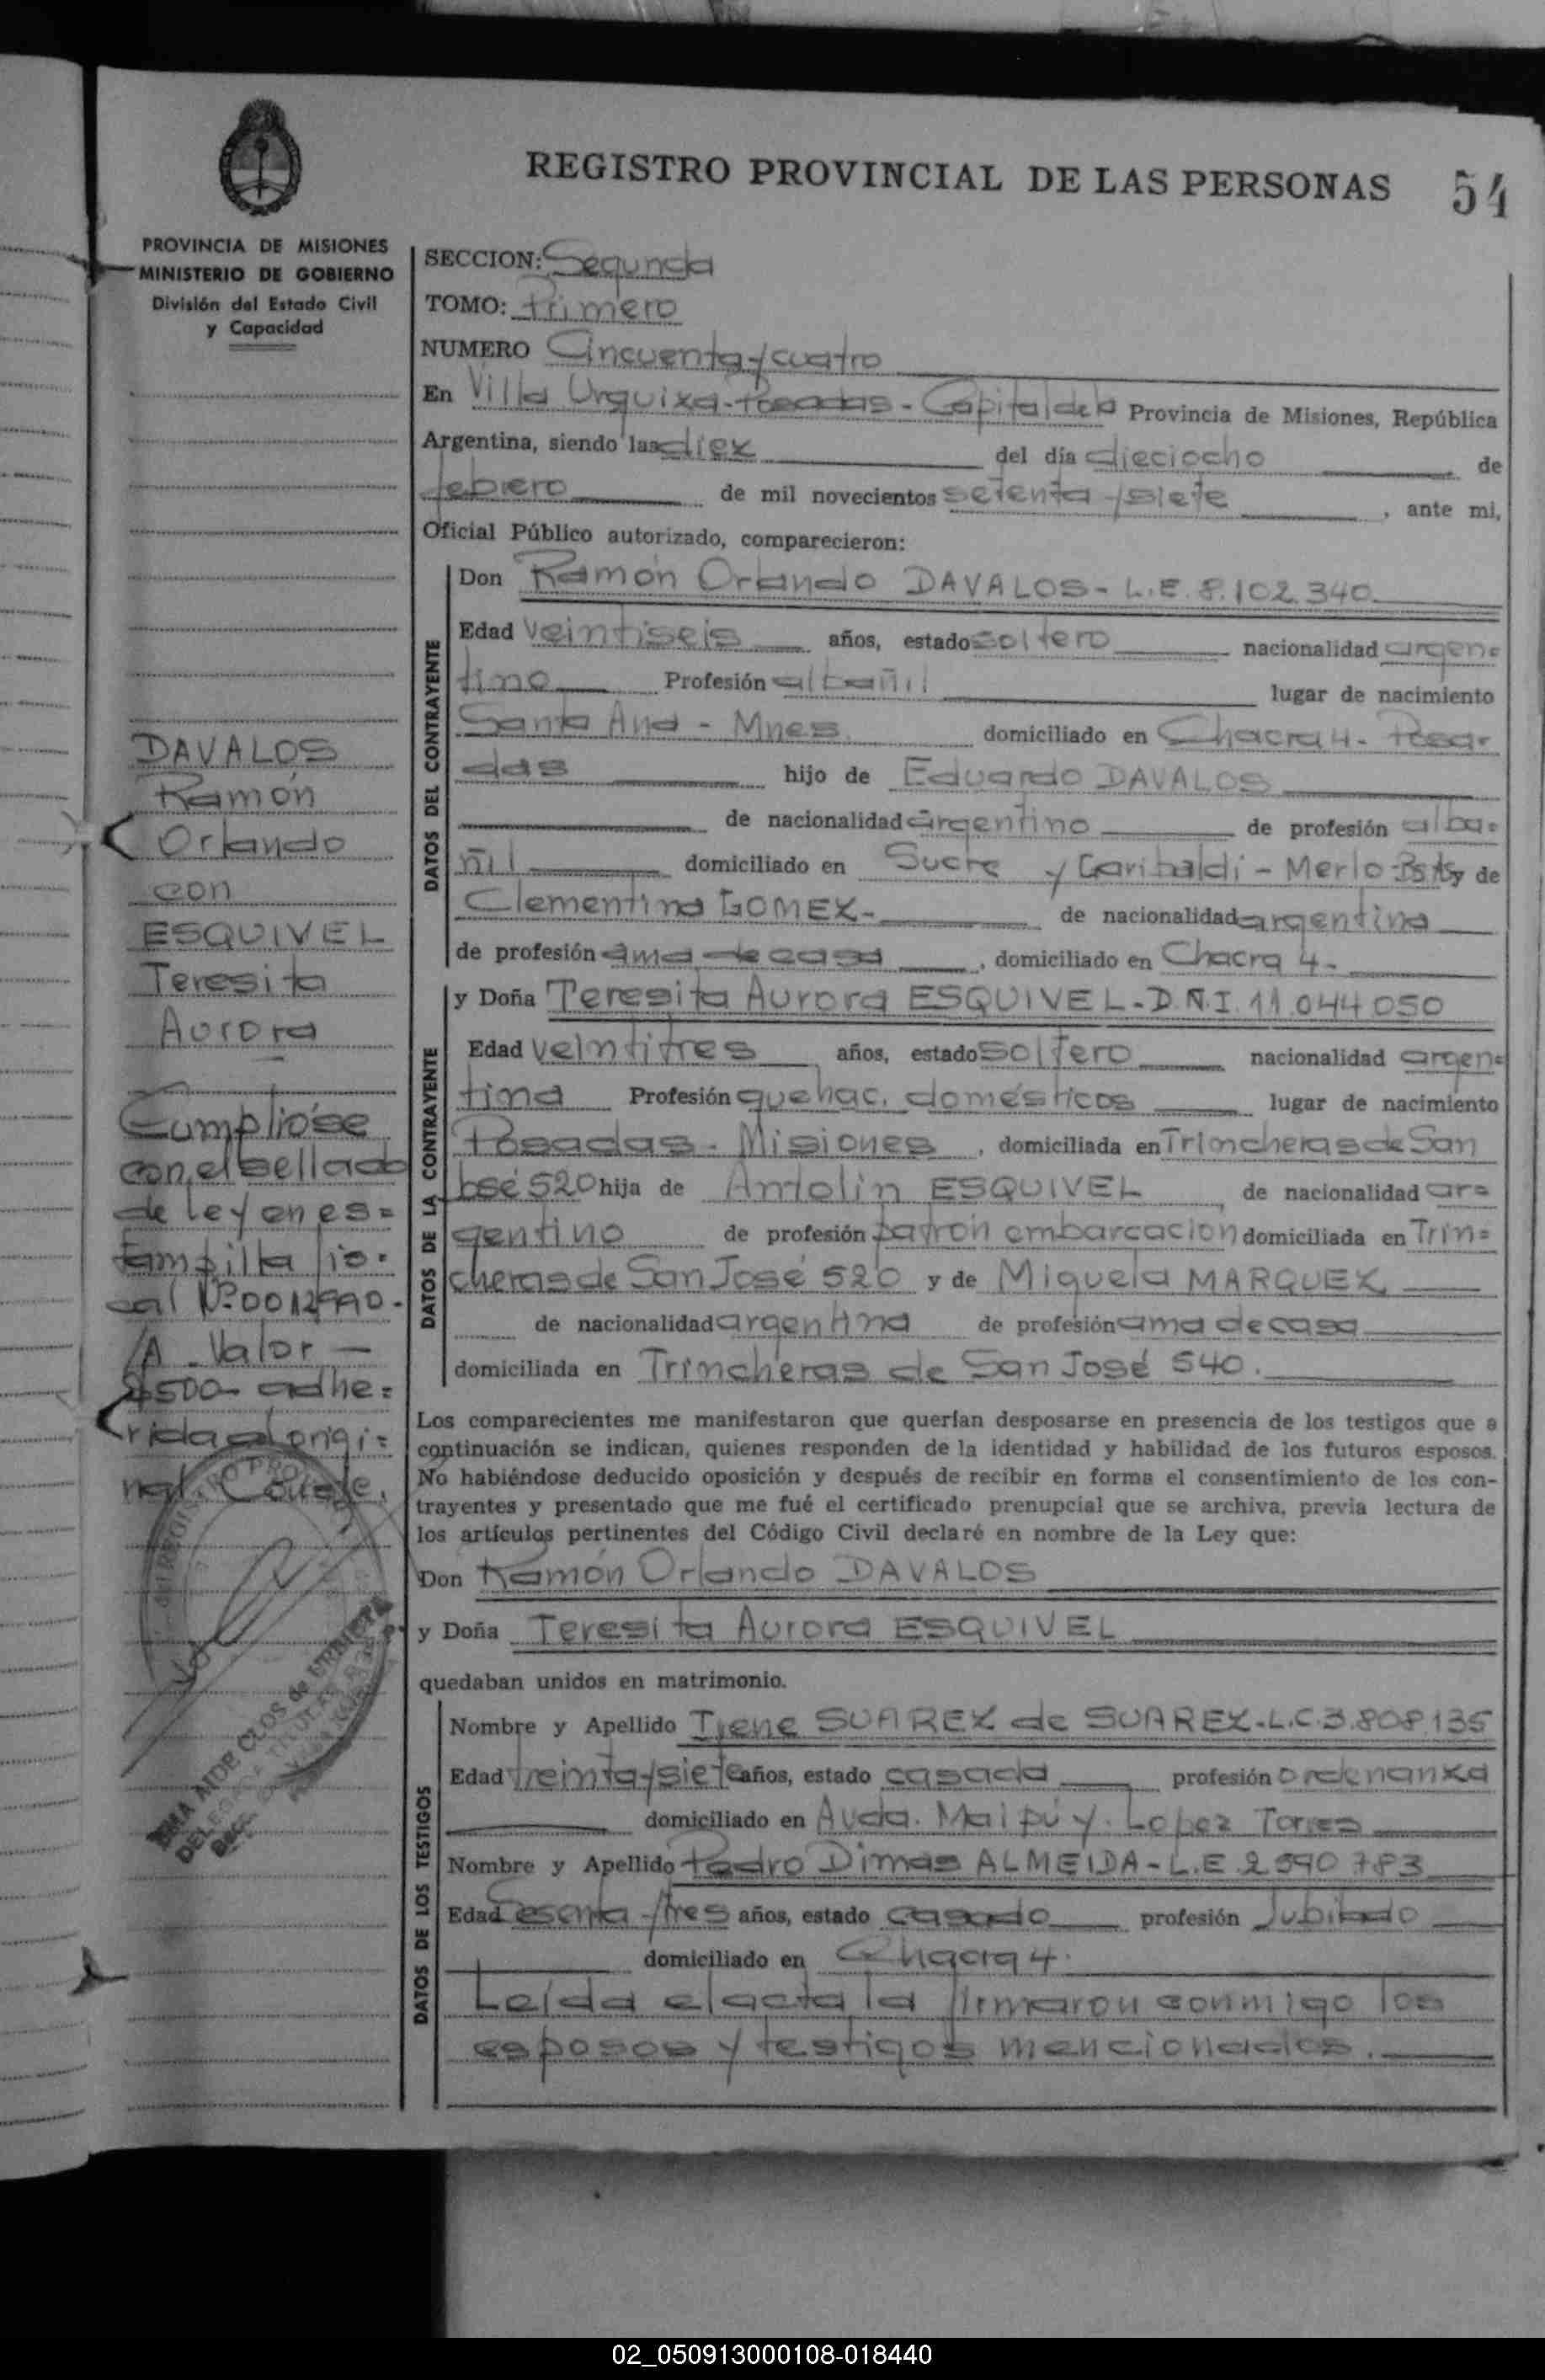 REGISTRO PROVINCIAL DE LAS PERSONAS 54
PROVINCIA DE MISIONES
MINISTERIO DE GOBIERNO
División del Estado Civil
y Capacidad
DAVALOS
Ramón
Orlando
con
ESQUIVEL
Teresita
Aurora
Cumplióse
con el sellado
de ley en es=
tampilla fis=
cal Nº 0012990-
/A - Valor -
$500- adhe=
rida al origi=
nal. Conste.
SECCION: Segunda
TOMO: Primero
NUMERO Cincuenta y cuatro
En Villa Urquiza - Posadas - Capital de la Provincia de Misiones, República
Argentina, siendo las diez del día dieciocho de
febrero de mil novecientos setenta y siete, ante mi,
Oficial Público autorizado, comparecieron:
DATOS DEL CONTRAYENTE
Don Ramón Orlando DAVALOS - L.E. 8.102.340
Edad veintiseis años, estado soltero nacionalidad argen=
tino Profesión albañil lugar de nacimiento
Santa Ana - Mnes. domiciliado en Chacra 4 - Posa=
das hijo de Eduardo DAVALOS
de nacionalidad argentino de profesión alba=
ñil domiciliado en Sucre y Garibaldi - Merlo Bs As y de
Clementina GOMEZ - de nacionalidad argentina
de profesión ama de casa, domiciliado en Chacra 4 -
DATOS DE LA CONTRAYENTE
y Doña Teresita Aurora ESQUIVEL - D.N.I. 11.044050
Edad veintitres años, estado soltero nacionalidad argen=
tina Profesión quehac. domésticos lugar de nacimiento
Posadas - Misiones, domiciliada en Trincheras de San
José 520 hija de Antolin ESQUIVEL, de nacionalidad ar=
gentino de profesión patrón embarcación domiciliada en Trin=
cheras de San José 520 y de Miguela MARQUEZ
de nacionalidad argentina de profesión ama de casa
domiciliada en Trincheras de San José 540.
Los comparecientes me manifestaron que querían desposarse en presencia de los testigos que a
continuación se indican, quienes responden de la identidad y habilidad de los futuros esposos.
No habiéndose deducido oposición y después de recibir en forma el consentimiento de los con-
trayentes y presentado que me fué el certificado prenupcial que se archiva, previa lectura de
los artículos pertinentes del Código Civil declaré en nombre de la Ley que:
Don Ramón Orlando DAVALOS
y Doña Teresita Aurora ESQUIVEL
quedaban unidos en matrimonio.
DATOS DE LOS TESTIGOS
Nombre y Apellido Irene SUAREZ de SUAREZ - L.C. 3.808.135
Edad treinta y siete años, estado casada profesión ordenanza
domiciliado en Avda. Maipú y Lopez Torres
Nombre y Apellido Pedro Dimas ALMEIDA - L.E 2590783
Edad Sesenta y tres años, estado casado profesión Jubilado
domiciliado en Chacra 4.
Leída el acta la firmaron conmigo los
esposos y testigos mencionados.
02_050913000108-018440